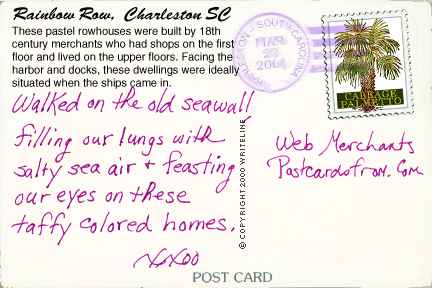 Rainbow Row, Charleston SC
These pastel rowhouses were built by 18th
century merchants who had shops on the first
floor and lived on the upper floors. Facing the
harbor and docks, these dwellings were ideally
situated when the ships came in.
Walked on the old seawall
filling our lungs with
salty sea air & feasting
our eyes on these
taffy colored homes.
XXOO
© COPYRIGHT 2000 WRITELINE
CHARLESTON - SOUTH CAROLINA
MAR
CABBAGE
PALMETTO
Web Merchants
Postcardsfrom.com
POST CARD